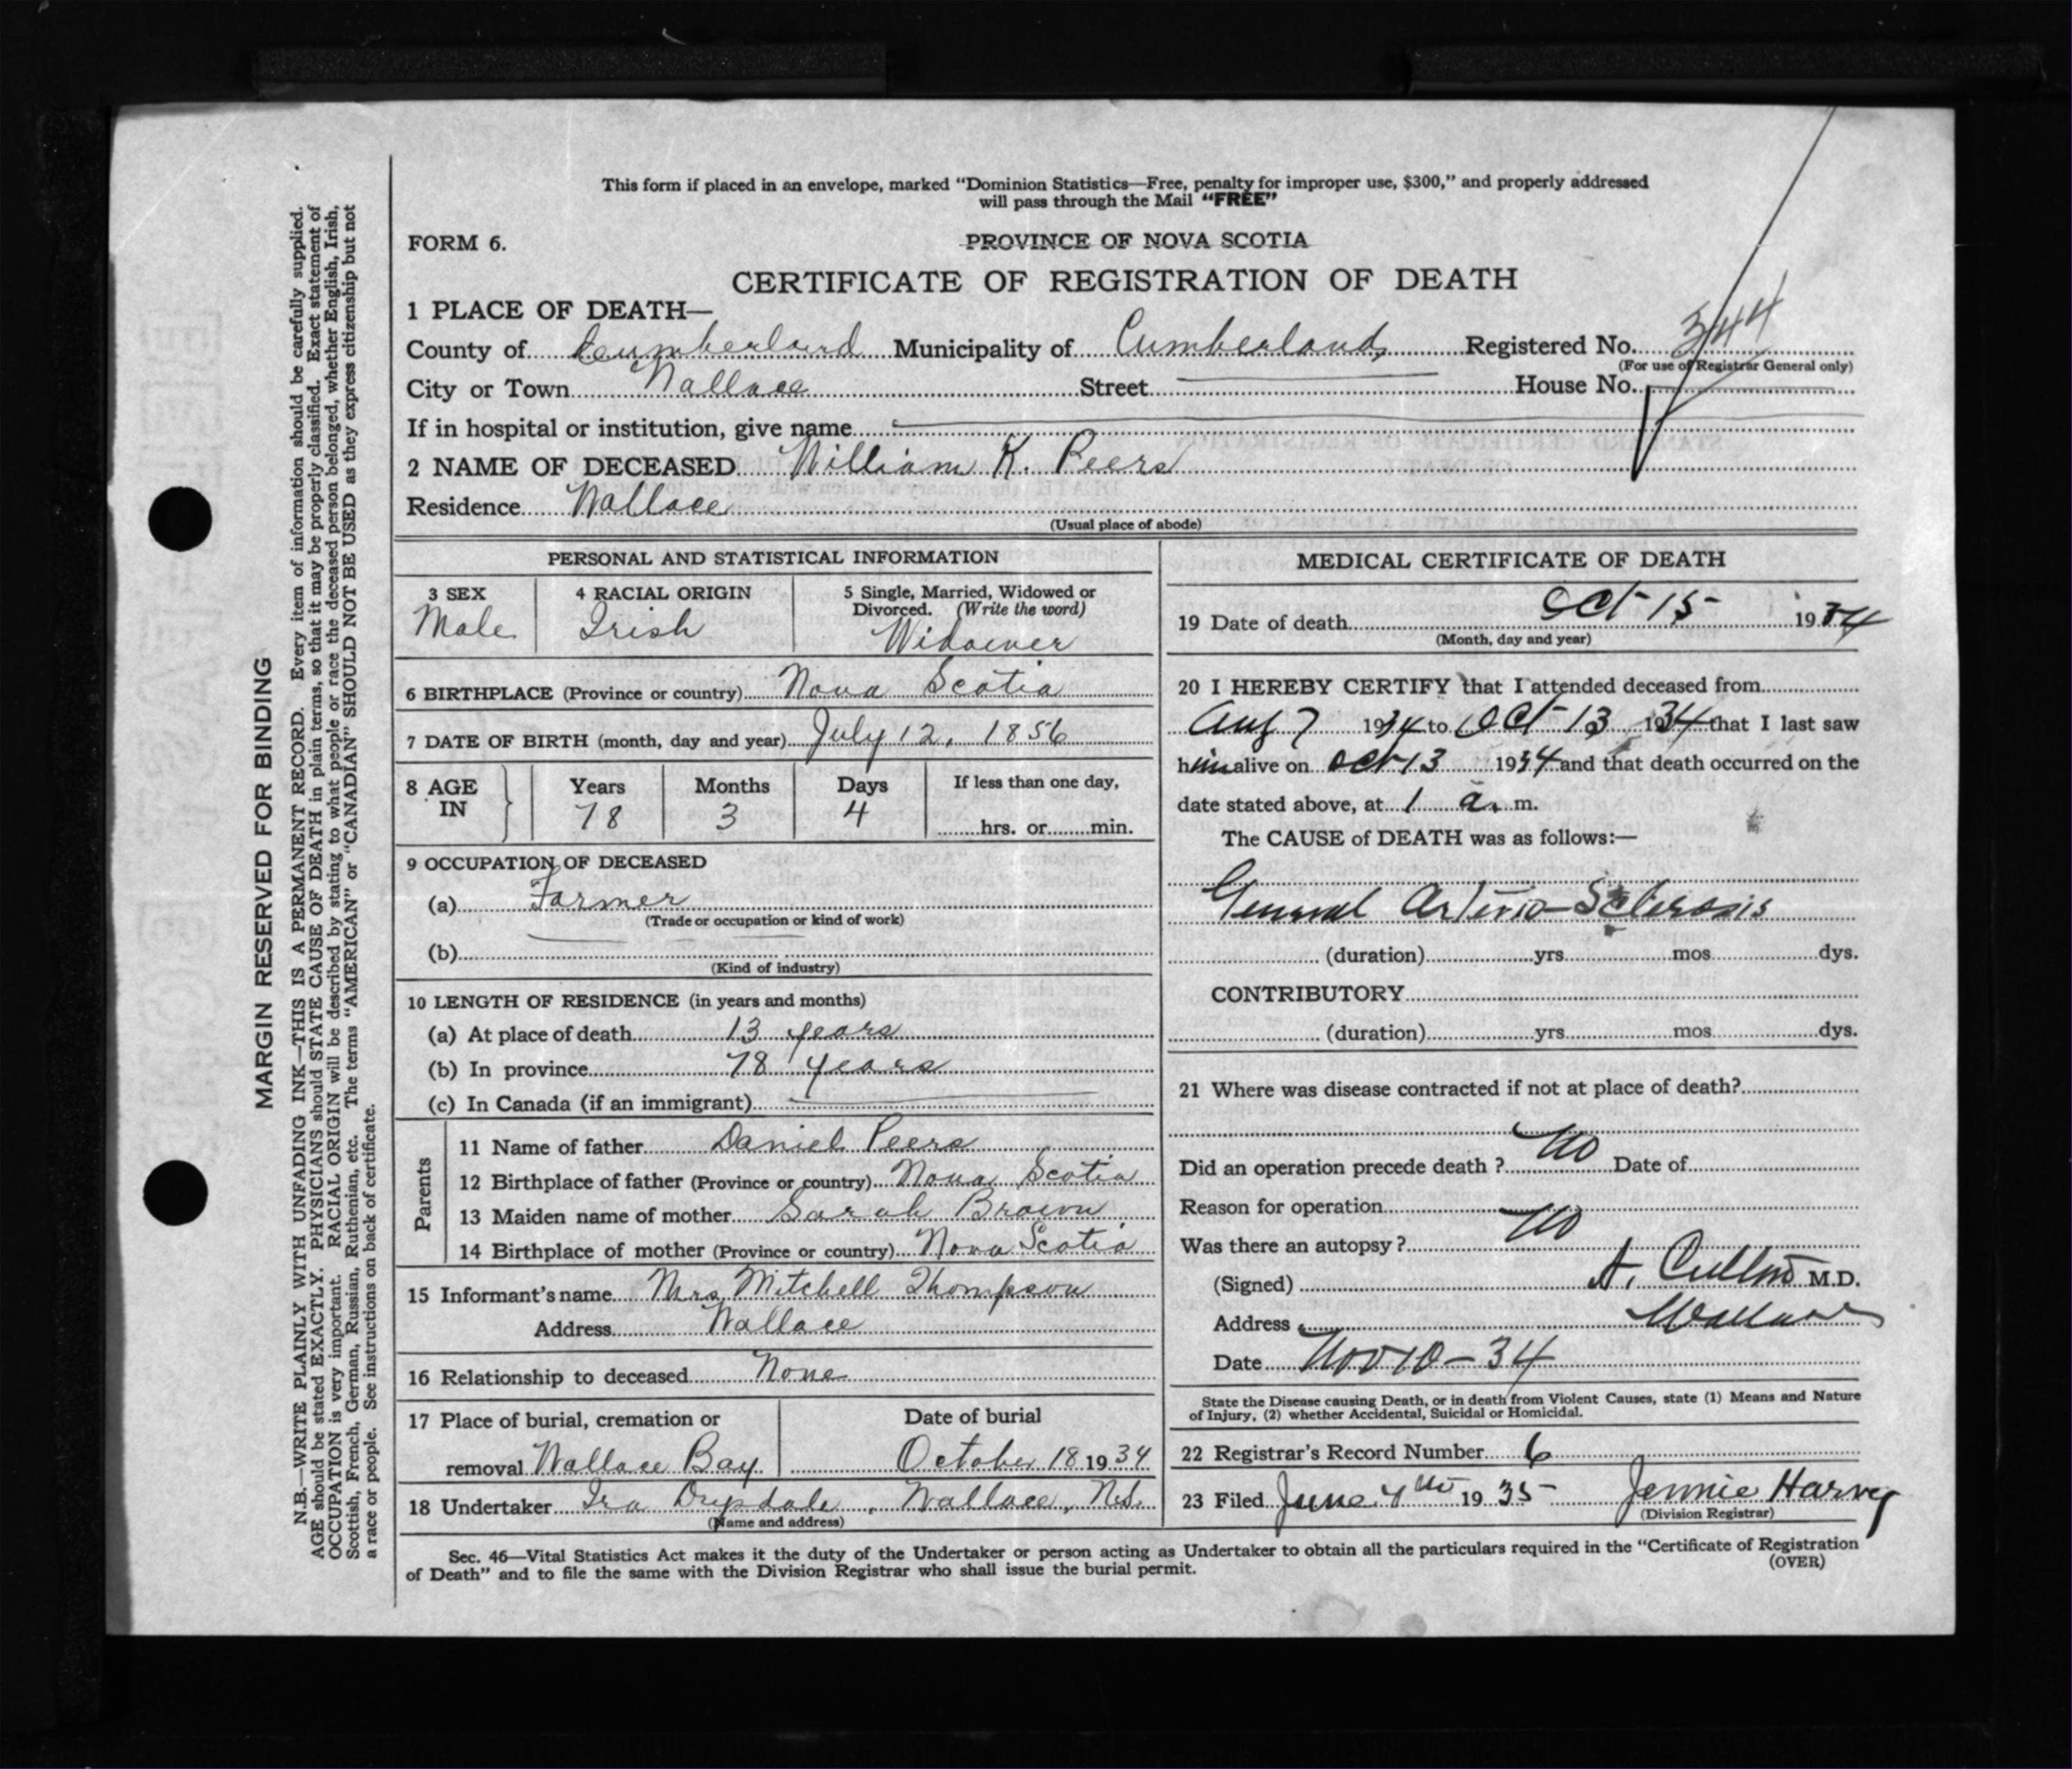 This form if placed in an envelope, marked "Dominion Statistics—Free, penalty for improper use, $300," and properly addressed
will pass through the Mail "FREE"
FORM 6.
PROVINCE OF NOVA SCOTIA
CERTIFICATE OF REGISTRATION OF DEATH
1 PLACE OF DEATH—
County of Cumberland Municipality of Cumberland Registered No. 344
(For use of Registrar General only)
City or Town Wallace Street House No.
If in hospital or institution, give name
2 NAME OF DECEASED William K. Peers
Residence Wallace
(Usual place of abode)
PERSONAL AND STATISTICAL INFORMATION
3 SEX 4 RACIAL ORIGIN 5 Single, Married, Widowed or
Divorced. (Write the word)
Male Irish Widower
6 BIRTHPLACE (Province or country) Nova Scotia
7 DATE OF BIRTH (month, day and year) July 12, 1856
8 AGE IN Years Months Days If less than one day,
78 3 4 hrs. or min.
9 OCCUPATION OF DECEASED
(a) Farmer
(Trade or occupation or kind of work)
(b)
(Kind of industry)
10 LENGTH OF RESIDENCE (in years and months)
(a) At place of death 13 years
(b) In province 78 years
(c) In Canada (if an immigrant)
Parents
11 Name of father Daniel Peers
12 Birthplace of father (Province or country) Nova Scotia
13 Maiden name of mother Sarah Brown
14 Birthplace of mother (Province or country) Nova Scotia
15 Informant's name Mrs Mitchell Thompson
Address Wallace
16 Relationship to deceased None
17 Place of burial, cremation or Date of burial
removal Wallace Bay October 18 1934
18 Undertaker Ira Drysdale, Wallace, N.S.
(Name and address)
MEDICAL CERTIFICATE OF DEATH
19 Date of death Oct 15 1934
(Month, day and year)
20 I HEREBY CERTIFY that I attended deceased from
Aug 7 1934 to Oct 13 1934 that I last saw
him alive on Oct 13 1934 and that death occurred on the
date stated above, at 1 a. m.
The CAUSE of DEATH was as follows:—
General Arterio-Sclerosis
(duration) yrs mos dys.
CONTRIBUTORY
(duration) yrs mos dys.
21 Where was disease contracted if not at place of death?
Did an operation precede death? No Date of
Reason for operation
Was there an autopsy? No
(Signed) A. M.D.
Address Wallace
Date Nov 10-34
State the Disease causing Death, or in death from Violent Causes, state (1) Means and Nature
of Injury, (2) whether Accidental, Suicidal or Homicidal.
22 Registrar's Record Number 6
23 Filed June 4th 1935 Jennie Harvey
(Division Registrar)
Sec. 46—Vital Statistics Act makes it the duty of the Undertaker or person acting as Undertaker to obtain all the particulars required in the "Certificate of Registration
of Death" and to file the same with the Division Registrar who shall issue the burial permit.
(OVER)
MARGIN RESERVED FOR BINDING
N.B.—WRITE PLAINLY WITH UNFADING INK—THIS IS A PERMANENT RECORD. Every item of information should be carefully supplied.
AGE should be stated EXACTLY. PHYSICIANS should STATE CAUSE OF DEATH in plain terms, so that it may be properly classified. Exact statement of
OCCUPATION is very important. RACIAL ORIGIN will be described by stating to what people or race the deceased person belonged, whether English, Irish,
Scottish, French, German, Russian, Ruthenian, etc. The terms "AMERICAN" or "CANADIAN" SHOULD NOT BE USED as they express citizenship but not
a race or people. See instructions on back of certificate.